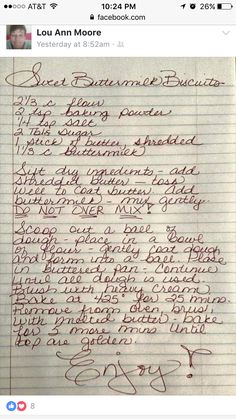 AT&T
10:24 PM
64%
facebook.com
Lou Ann Moore
Yesterday at 8:52am
Sweet Buttermilk Biscuits
2 1/3 c flour
2 tsp baking powder
1/4 tsp salt
2 Tbls sugar
1 stick of butter, shredded
1 1/3 c buttermilk
Sift dry ingredients - add
shredded butter - toss
well to coat butter. Add
buttermilk - mix gently.
DO NOT OVER MIX!
Scoop out a ball of
dough - place in a bowl
of flour - gently coat dough
and form into a ball. Place
in buttered pan - Continue
until all dough is used.
Brush with heavy cream.
Bake at 425° for 25 mins.
Remove from oven, brush
with melted butter - bake
for 5 more mins until
top are golden.
Enjoy!
8